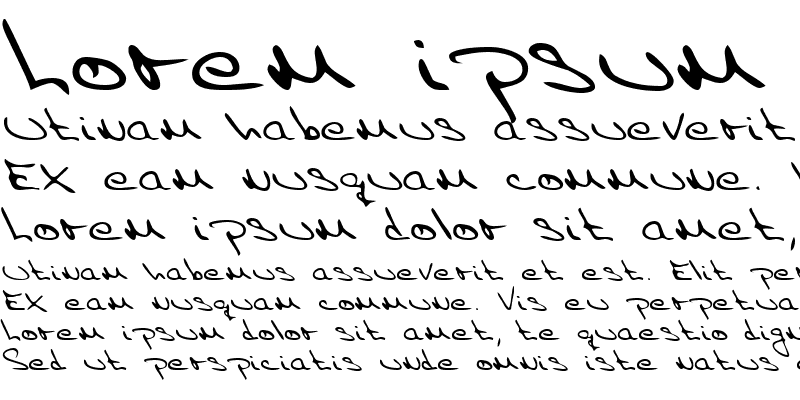 Lorem ipsum
Utinam habemus assueverit
EX eam nusquam commune.
Lorem ipsum dolor sit amet,
Utinam habemus assueverit et est. Elit per
EX eam nusquam commune. Vis eu perpetua
Lorem ipsum dolor sit amet, te quaestio dign
Sed ut perspiciatis unde omnis iste natus